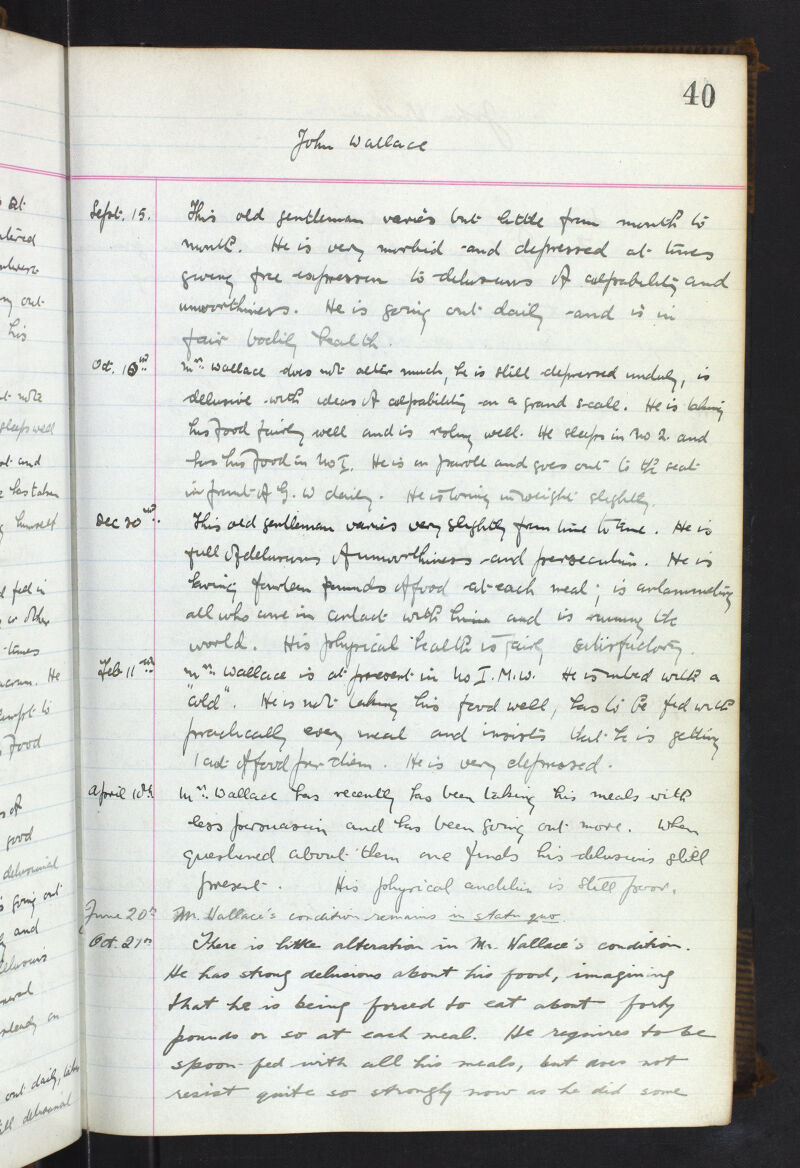 40
John Wallace
Sept. 15. This old gentleman varies but little from month to
month. He is very morbid and depressed at times
giving free expression to delusions of culpability and
unworthiness. He is going out daily and is in
fair bodily health.
Oct. Mr. Wallace does not alter much, he is still depressed unduly, is
delusive with ideas of culpability on a grand scale. He is taking
his food fairly well and is well. He sleeps in No 2. and
has his food in No I. He is on parole and goes out to the seat
in front of G. W daily. He is losing in weight slightly.
Dec 20th. This old gentleman varies very slightly from time to time. He is
full of delusions of unworthiness and persecution. He is
having fourteen pounds of food at each meal; is contaminating
all who come in contact with him and is ruining the
world. His physical health is fairly satisfactory.
Feb 11th Mr. Wallace is at present in No I. M.W. He is in bed with a
"cold". He is not taking his food well, has to be fed with
practically every meal and insists that he is getting
1 cwt of food per diem. He is very depressed.
April 10th. Mr. Wallace has recently has been taking his meals with
less persuasion and has been going out more. When
questioned about them one finds his delusions still
present. His physical condition is still poor.
June 20th Mr. Wallace's condition remains in statu quo.
Oct. 21st There is little alteration in Mr. Wallace's condition.
He has strong delusions about his food, imagining
that he is being forced to eat about forty
pounds or so at each meal. He requires to be
spoon-fed with all his meals, but does not
resist quite so strongly now as he did some